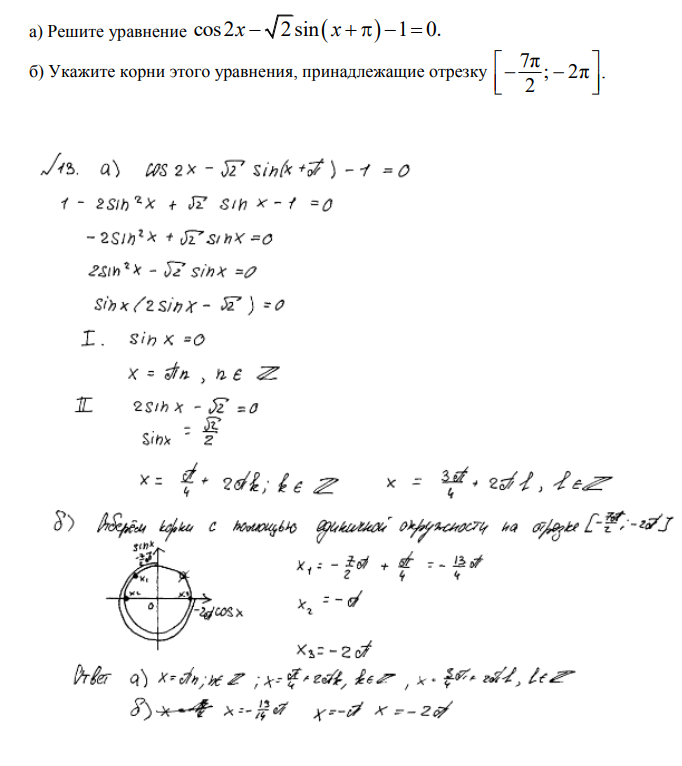 а) Решите уравнение cos2x − √2 sin(x + π) − 1 = 0.
б) Укажите корни этого уравнения, принадлежащие отрезку [−7π/2; −2π].
√13. а) cos 2x − √2 sin(x + π) − 1 = 0
1 − 2sin²x + √2 sin x − 1 = 0
−2sin²x + √2 sin x = 0
2sin²x − √2 sin x = 0
sin x (2 sin x − √2) = 0
I. sin x = 0
x = πn, n ∈ Z
II 2sin x − √2 = 0
sin x = √2/2
x = π/4 + 2πk; k ∈ Z x = 3π/4 + 2πl, l ∈ Z
б) Отберём корни с помощью единичной окружности на отрезке [−7π/2; −2π]
sin x
x₁
x₂ 0 x₃
−2π cos x
x₁ = −7/2 π + π/4 = −13/4 π
x₂ = −π
x₃ = −2π
Ответ а) x = πn; n ∈ Z; x = π/4 + 2πk, k ∈ Z, x = 3/4 π + 2πl, l ∈ Z
б) x = −13/14 π x = −π x = −2π